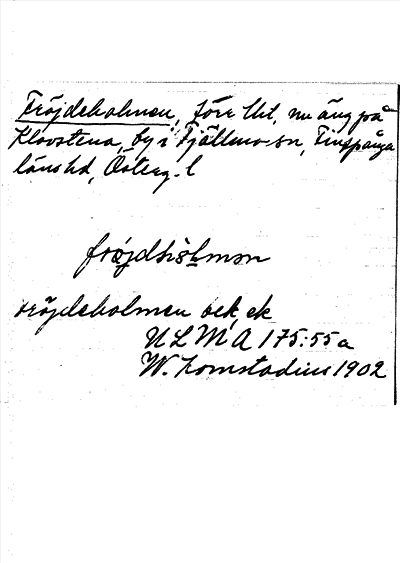 Fröjdeholmen, förr tht, nu äng på
Klovstena, by i Fjällmo sn, Finspånga
länshd, Österg. l
fröjdhålmən
Fröjdeholmen bek, ek
ULMA 175:55a
W. Zomstadius 1902